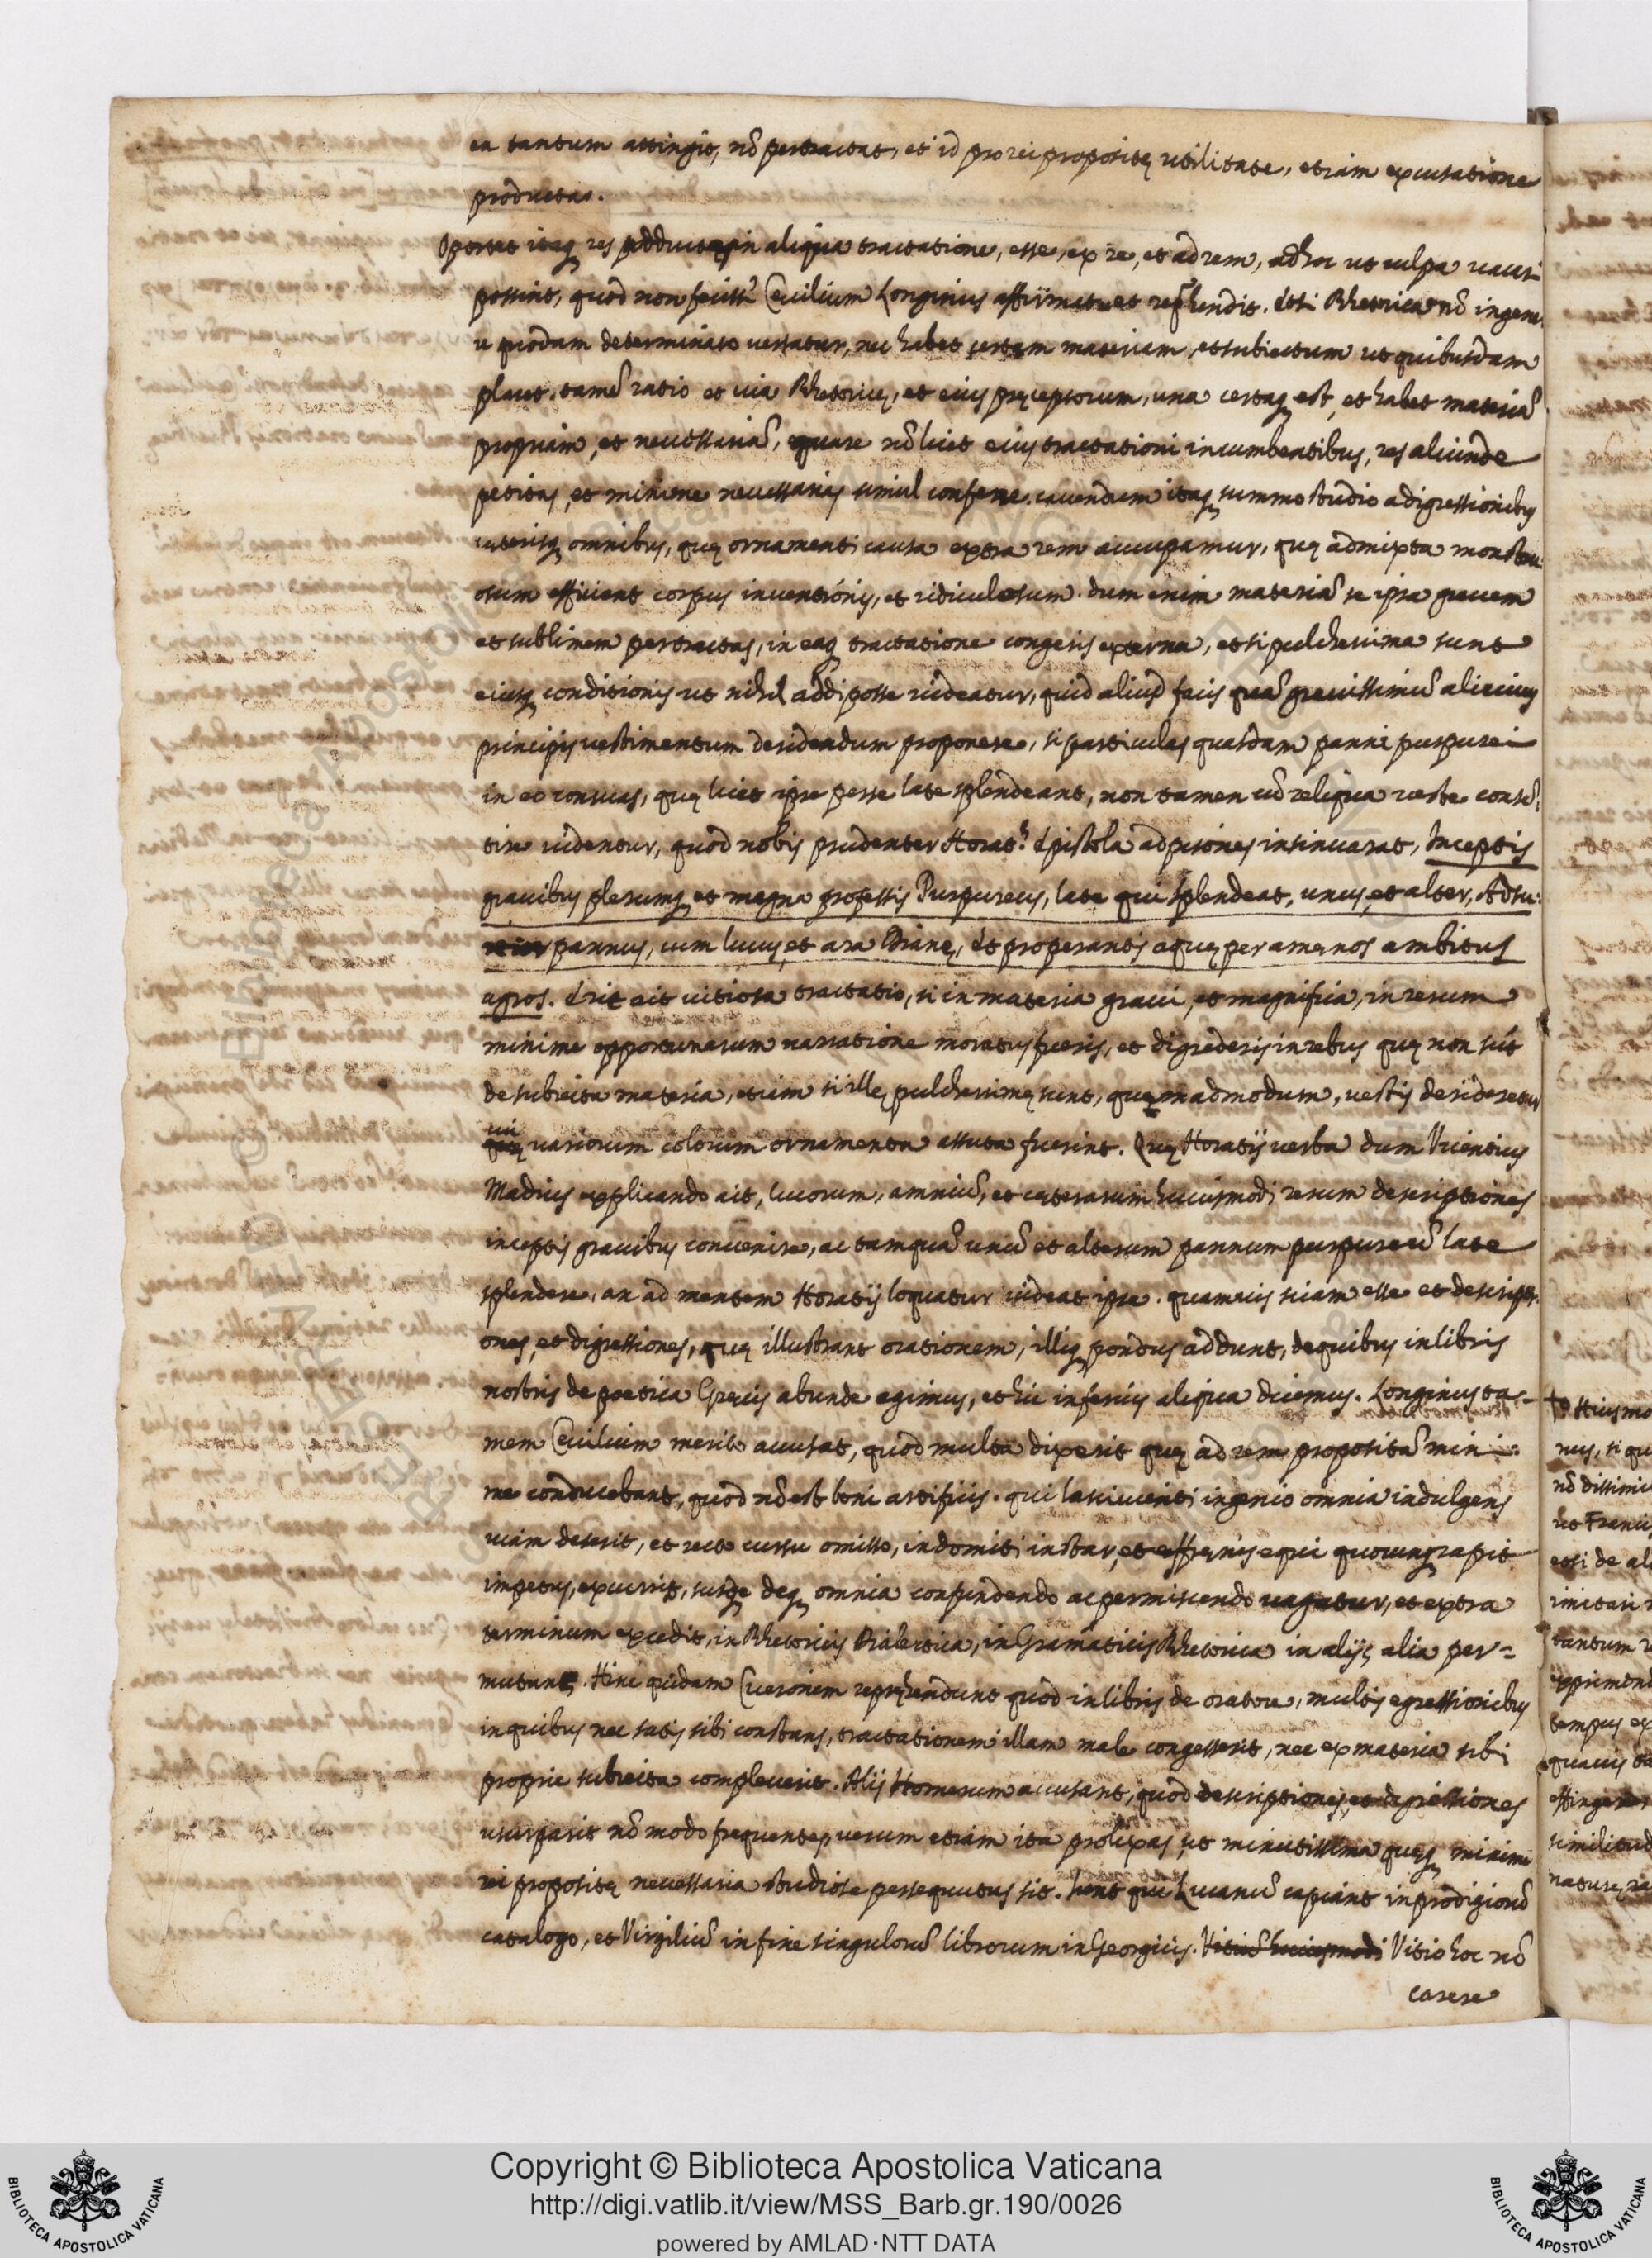 ea tantum attingit, nõ pertractat, et id pro rei propositę utilitate, etiam excusatione
producta.
Oportet itaq; res adductas in aliqua tractatione, esse, ex re, et ad rem, ad hoc ut culpa vacare
possint, quod non fecisse Cecilium Longinus affirmat et repręhendit. Etsi Rhetorica nõ in gene-
re quodam determinato versatur, nec habet certam materiam, et subiectum ut quibusdam
placet. tamẽ ratio et via Rhetoricę, et eius pręceptorum, una certaq; est, et habet materiã
propriam, et necessariã, quare nõ licet eius tractationi incumbentibus, res aliunde
petitas, et minime necessarias simul conferre. cavendum itaq; summo studio a digressionibus
cęterisq; omnibus, quę ornamenti causa extra rem aucupamur, quę admixta monstru-
osum efficient corpus inventionis, et ridiculosum. dum enim materiã se ipsa gravem
et sublimem pertractas, in eaq; tractatione congeris externa, etsi pulcherrima sunt
eiusq; conditionis ut nihil addi posse videatur, quid aliud facis quã gravissimũ alicuius
principis vestimentum deridendum proponere, si particulas quasdam panni purpurei
in eo consuas, quę licet ipse per se late splendeant, non tamen cũ reliqua veste consẽ-
tire videntur, quod nobis prudenter Horat.s Epistola ad pisones insinuarat, Inceptis
gravibus plerumq; et magna professis Purpureus, late qui splendeat, unus, et alter, Adsu-
itur pannus, cum lucus, et ara Dianę, Et properantis aquę per amęnos ambitus
agros. Erit ait vitiosa tractatio, si in materia gravi, et magnifica, in rerum
minime opportunarum narratione moratus fueris, et digrederis in rebus quę non sũt
de subiecta materia, etiam si illę pulcherrimę sunt, quemadmodum, vestis derideretur
cui variorum colorum ornamenta assuta fuerint. Quę Horatij verba dum Vicentius
Madius explicando ait, lucorum, amniũ, et cęterarum huiusmodi rerum descriptiones
inceptis gravibus convenire, ac tamquã unũ et alterum pannum purpureũ late
splendere, an ad mentem Horatij loquatur videat ipse. quamvis sciam esse et descripti-
ones, et digressiones, quę illustrant orationem, illiq; pondus addunt, de quibus in libris
nostris de poetica Gręcis abunde egimus, et hic inferius aliqua dicemus. Longinus ta-
mem Cecilium merito accusat, quod multa dixerit quę ad rem propositã mini-
me conducebant, quod nõ est boni artificis. qui lascivienti ingenio omnia indulgens
viam deserit, et recto cursu omisso, indomiti instar, et effrenis equi quocunq; rapit
impetus, excurrit, susq; deq; omnia confundendo ac permiscendo vagatur, et extra
terminum excedit, in Rhetoricis Dialectica, in Gramaticis Rhetorica in alijs alia per-
mutans. Hinc quidam Ciceronem repręhendunt quod in libris de oratore, multis egressionibus
in quibus nec satis sibi constans, tractationem illam male congesserit, nec ex materia sibi
proprie subiecta compleverit. Alij Homerum accusant, quod descriptiones, et digressiones
usurparit nõ modo frequentes, verum etiam ita prolixas, ut minutissima quęq; minime
rei propositę necessaria studiose persequutus sit. sunt qui Lucanũ capiant in prodigiorũ
catalogo, et Virgiliũ in fine singulorũ librorum in Georgicis. Vitiũ huiusmodi Vitio hoc nõ
carere
Copyright © Biblioteca Apostolica Vaticana
http://digi.vatlib.it/view/MSS_Barb.gr.190/0026
powered by AMLAD·NTT DATA
BIBLIOTECA APOSTOLICA VATICANA
BIBLIOTECA APOSTOLICA VATICANA